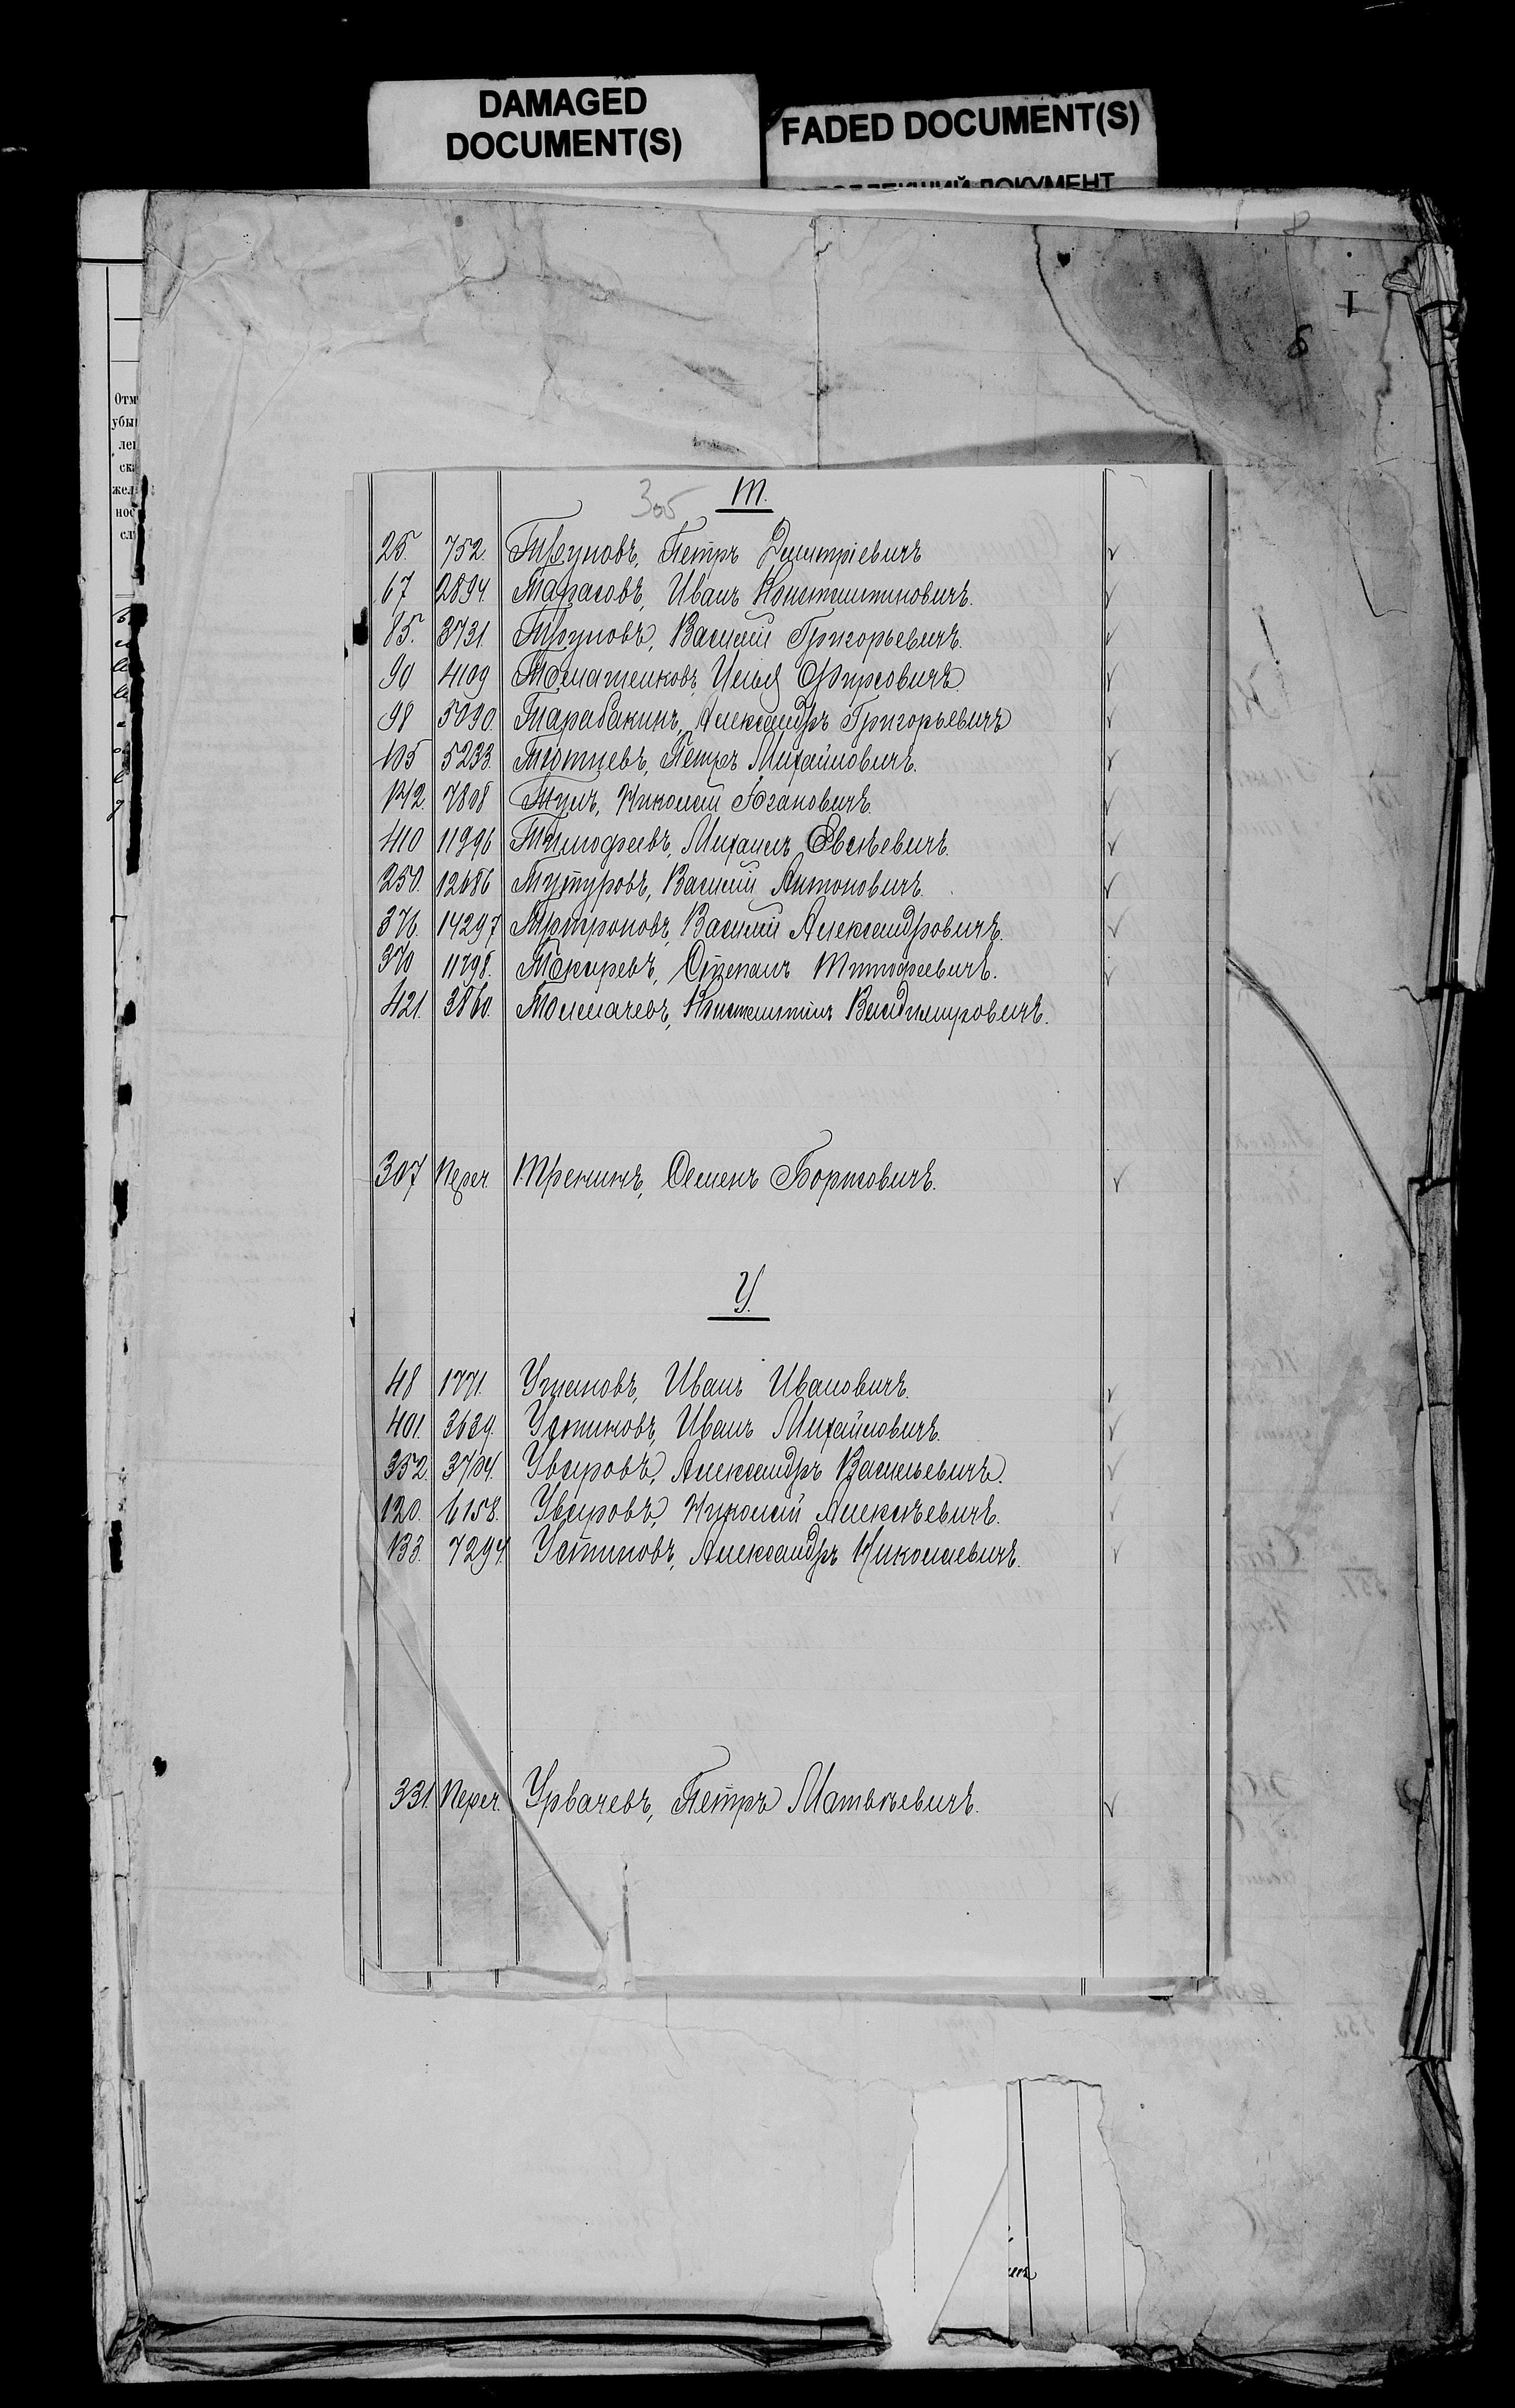 DAMAGED
DOCUMENT(S)
FADED DOCUMENT(S)
ДОКУМЕНТ
305 Т.
25. 752. Трухновъ, Петръ Дмитріевичъ
67 2894. Тарасовъ, Иванъ Константиновичъ.
85. 3731. Василій Григорьевичъ.
90 4109 Илья Фирсовичъ
98 5090. Тарабакинъ, Александръ Григорьевичъ
105 5233. Петръ Михайловичъ.
142. 7808 Николай
410 11996 Тимофеевъ, Михаилъ Евсѣевичъ.
250. 12686 Тутуровъ, Василій Антоновичъ.
376. 14297 Трифоновъ, Василій Александровичъ.
370 11798. Токаревъ, Степанъ Тимофеевичъ.
421. 3860. Толмачевъ, Константинъ Владимировичъ.
307 Перех. Тренинъ, Семенъ Борисовичъ.
У.
48 1771. Углановъ, Иванъ Ивановичъ.
401. 3639. Устиновъ, Иванъ Михайловичъ.
352. 3704. Уваровъ, Александръ Васильевичъ.
120. 6158. Уваровъ, Николай Алексѣевичъ.
133. 7294. Устиновъ, Александръ Николаевичъ.
331. Перех. Урвачевъ, Петръ Матвѣевичъ.
Отм
убы
лен
ска
жел
нос
сл